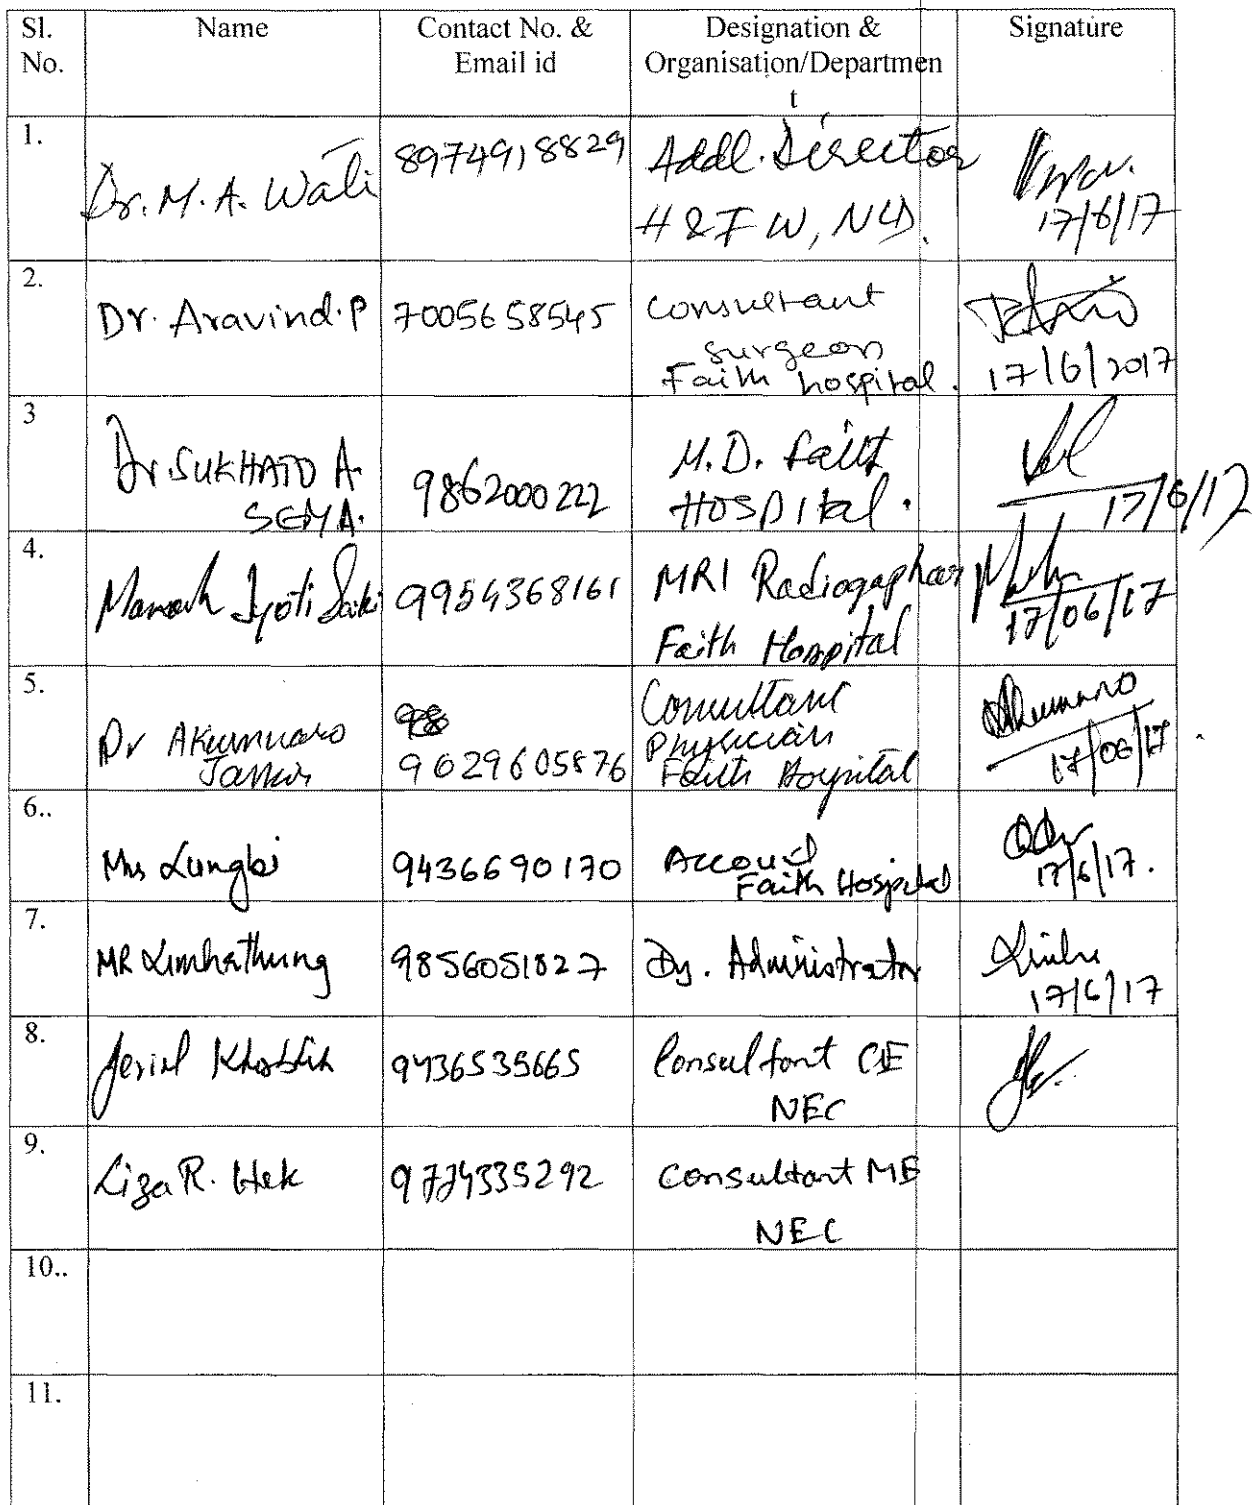 Sl. No. Name Contact No. & Email id Designation & Organisation/Departmen t Signature
1. Dr. M. A. Wati 8974918829 Addl. Director
H & F W, NLD. 17/6/17
2. Dr. Aravind. P 7005658545 Consultant
surgeon
Faith hospital. 17/6/2017
3 Dr SUKHATO A. SEMA. 9862000222 M.D. Faith
HOSPItal. 17/6/17
4. Manash Jyoti Saiki 9954368161 MRI Radiogapher
Faith Hospital 17/06/17
5. Dr Akumnaro 9629605876 Consultant
Physician
Faith Hospital 17/06/17
6.. Mrs 9436690170 Account
Faith Hospital 17/6/17.
7. MR Limhathung 9856051827 Dy. Administrator 17/6/17
8. 9436535665 Consultant CE
NEC
9. Liza R. Hek 9774335292 Consultant ME
NEC
10..
11.